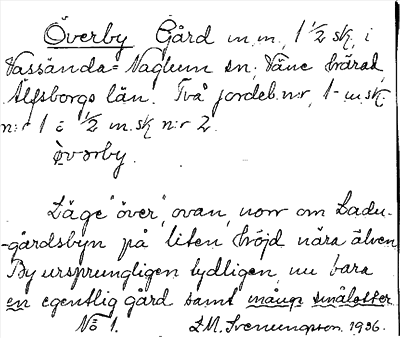 Överby Gård m.m., 1 1/2 sk, i
Vassända-Naglum sn; Väne härad,
Älfsborgs län. Två jordeb.n:r, 1 m.sk.
n:r 1 o 1/2 m.sk n:r 2.
övərby.
Läge "över", ovan, norr om Ladu-
-gårdsbyn på liten höjd nära älven
By ursprungligen tydligen, nu bara
en egentlig gård samt många smålotter
No 1. L.M. Svenungsson. 1936.